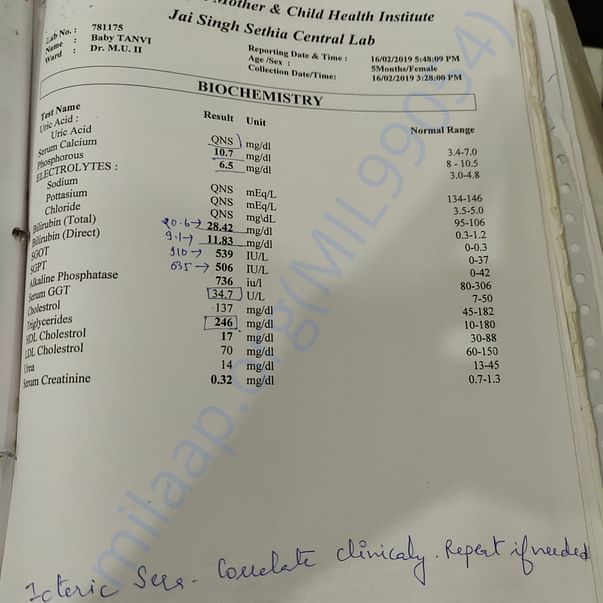 Mother & Child Health Institute
Jai Singh Sethia Central Lab
Lab No. : 781175
Name : Baby TANVI
Ward : Dr. M.U. II
Reporting Date & Time : 16/02/2019 5:48:09 PM
Age /Sex : 5Months/Female
Collection Date/Time: 16/02/2019 3:28:00 PM
BIOCHEMISTRY
Test Name Result Unit Normal Range
Uric Acid :
Uric Acid QNS mg/dl 3.4-7.0
Serum Calcium 10.7 mg/dl 8 - 10.5
Phosphorous 6.5 mg/dl 3.0-4.8
ELECTROLYTES :
Sodium QNS mEq/L 134-146
Pottasium QNS mEq/L 3.5-5.0
Chloride QNS mg\dL 95-106
Bilirubin (Total) 20.6→ 28.42 mg/dl 0.3-1.2
Bilirubin (Direct) 9.1→ 11.83 mg/dl 0-0.3
SGOT 910→ 539 IU/L 0-37
SGPT 635→ 506 IU/L 0-42
Alkaline Phosphatase 736 iu/l 80-306
Serum GGT 34.7 U/L 7-50
Cholestrol 137 mg/dl 45-182
Triglycerides 246 mg/dl 10-180
HDL Cholestrol 17 mg/dl 30-88
LDL Cholestrol 70 mg/dl 60-150
Urea 14 mg/dl 13-45
Serum Creatinine 0.32 mg/dl 0.7-1.3
Icteric Sera. Correlate clinicaly. Repeat if needed
milaap.org(MIL99054)